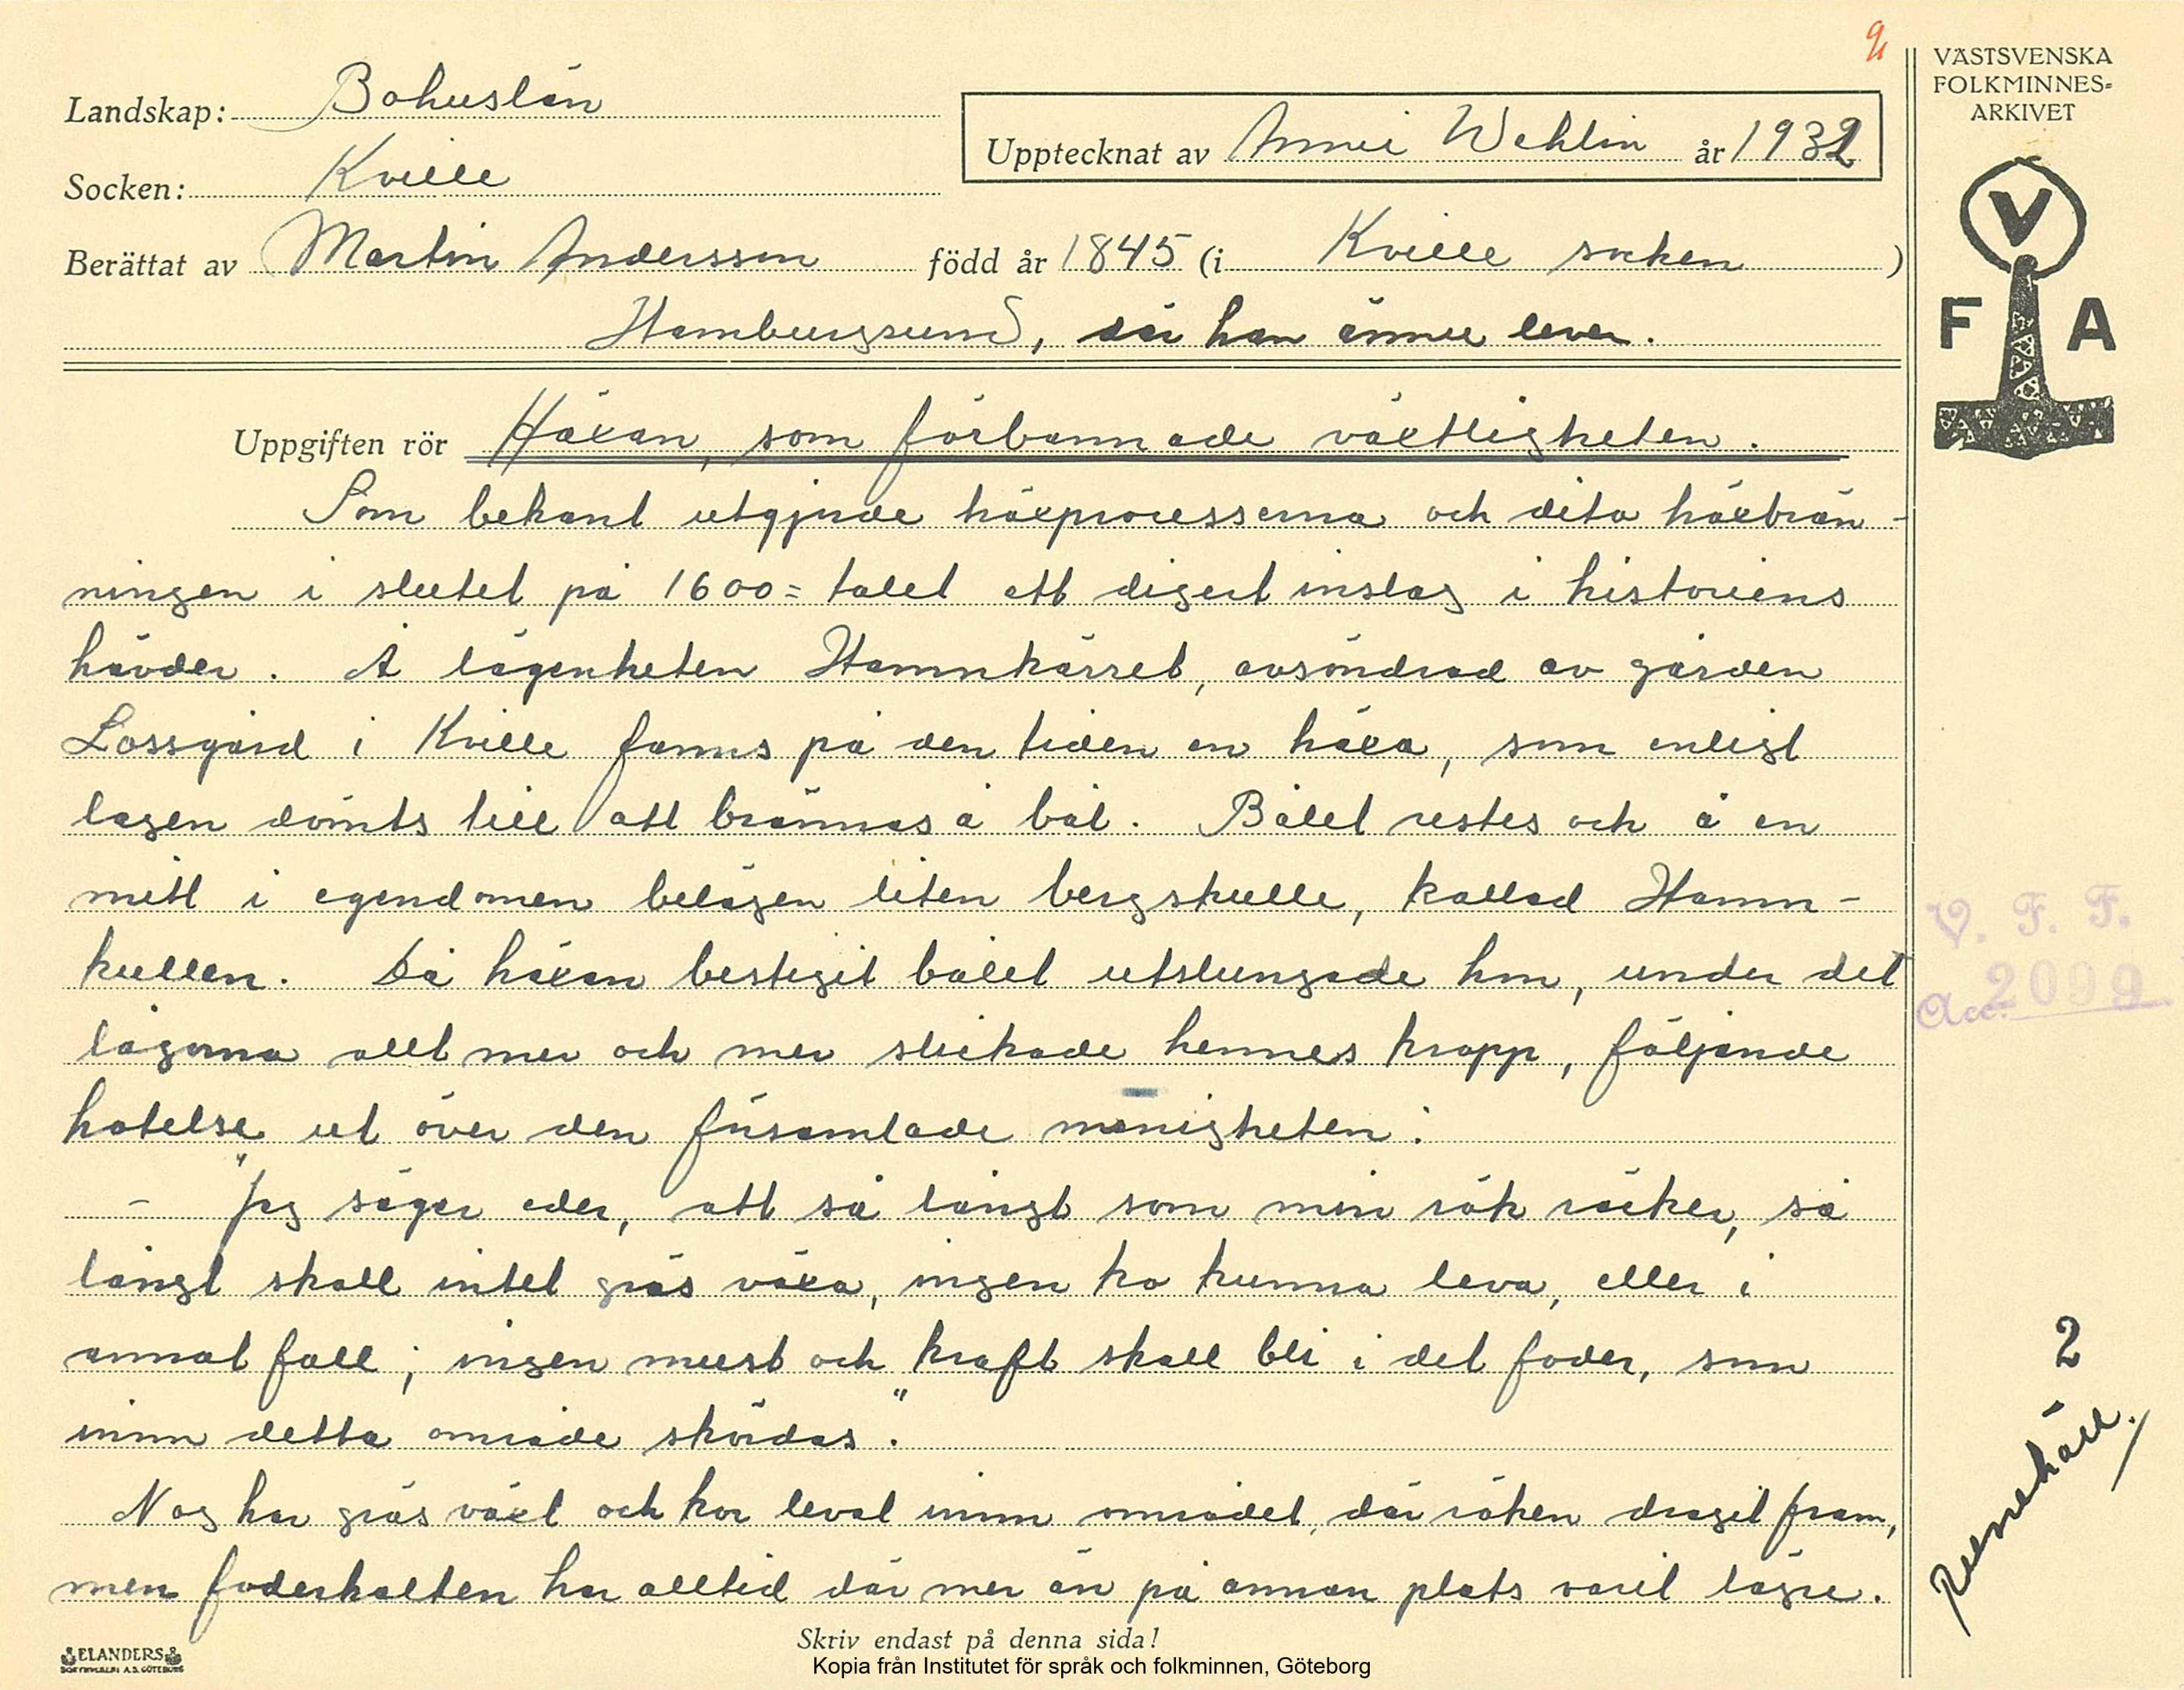 9
VÄSTSVENSKA
FOLKMINNES=
ARKIVET
Landskap: Bohuslän
Upptecknat av Annie Wehlin år 1932
Socken: Kville
Berättat av Martin Andersson född år 1845 (i Kville socken )
Hamburgsund, där han ännu lever.
V
F A
Uppgiften rör Häxan, som förbannade växtligheten.
Som bekant utgjorde häxprocesserna och dito häxbrän-
ningen i slutet på 1600=talet ett digert inslag i historiens
hävder. Å lägenheten Hamnkärret, avsöndrad av gården
Lossgård i Kville fanns på den tiden en häxa, som enligt
lagen dömts till att brännas å bål. Bålet restes och å en
mitt i egendomen belägen liten bergskulle, kallad Hamn-
kullen. Då häxan bestigit bålet utslungade hon, under det
lågorna allt mer och mer slickade hennes kropp, följande
hotelse ut över den församlade menigheten:
- "Jag säger eder, att så långt som min rök räcker, så
långt skall intet gräs växa, ingen ko kunna leva, eller i
annat fall; ingen must och kraft skall bli i det foder, som
inom detta område skördas."
Nog har gräs växt och kor levat inom området, där röken dragit fram,
men foderhalten har alltid där mer än på annan plats varit lägre.
V. F. F.
Acc. 2099
2
Runehäll.
ELANDERS
BOKTRYCKERI A.B. GÖTEBORG
Skriv endast på denna sida!
Kopia från Institutet för språk och folkminnen, Göteborg